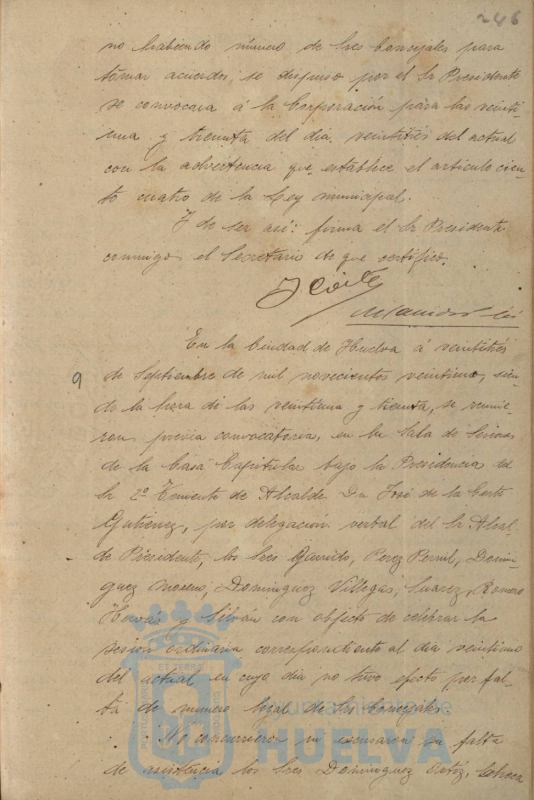 246
no habiendo número de Sres Concejales para
tomar acuerdos, se dispuso por el Sr Presidente
se convocara á la Corporación para las veinti-
una y treinta del dia veintitres del actual
con la advertencia que establece el articulo cien-
to cuatro de la Ley municipal.
Y de ser asi: firma el Sr Presidente
conmigo el Secretario de que certifico.
En la Ciudad de Huelva á veintitres
9
de Septiembre de mil novecientos veintiuno, sien-
do la hora de las veintiuna y treinta, se reunie-
ron previa convocatoria, en la Sala de Sesiones
de la Casa Capitular bajo la Presidencia del
Sr 2º Teniente de Alcalde Dn José de la Corte
Gutierrez, por delegación verbal del Sr Alcal-
de Presidente, los Sres Garrido, Perez Perrul, Domin-
guez Moreno, Dominguez Villegas, Suarez, Romero
Hervás y Silván con objeto de celebrar la
sesion ordinaria correspondiente al dia veintiuno
del actual en cuyo dia no tuvo efecto por fal-
ta de numero legal de Sres Concejales.
No concurrieron ni escusaron su falta
de asistencia los Sres Dominguez
Ayuntamiento de
HUELVA